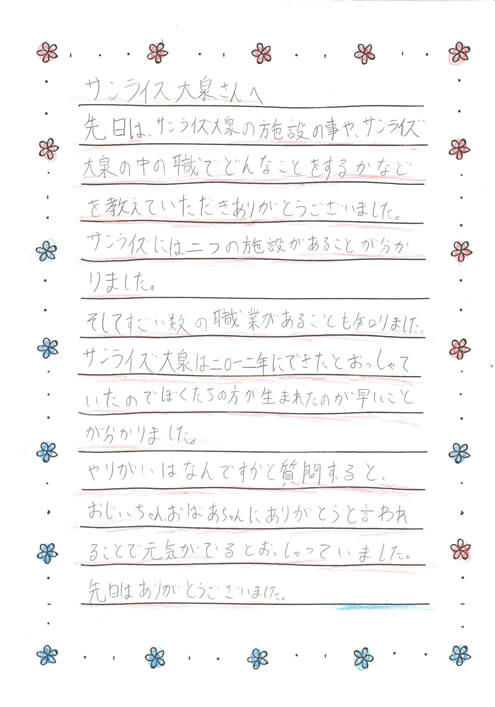 サンライズ大泉さんへ
先日は、サンライズ大泉の施設の事や、サンライズ
大泉の中の職でどんなことをするかなど
を教えていただきありがとうございました。
サンライズには二つの施設があることが分か
りました。
そしてすごい数の職業があることも知りました。
サンライズ大泉は二〇一二年にできたとおっしゃて
いたのでぼくたちの方が生まれたのが早いこと
が分かりました。
やりがいはなんですかと質問すると、
おじいちゃんおばあちゃんにありがとうと言われ
ることで元気がでるとおっしゃっていました。
先日はありがとうございました。